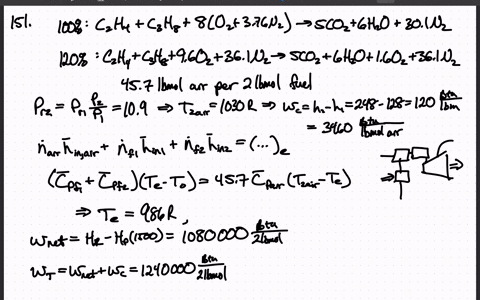 151. 100%: C₂H₄ + C₃H₈ + 8(O₂+3.76N₂) → 5CO₂+6H₂O+30.1N₂
120%: C₂H₄+C₃H₈+9.6O₂+36.1N₂ → 5CO₂+6H₂O+1.6O₂+36.1N₂
45.7 lbmol air per 2 lbmol fuel
Pr₂ = Pr₁ P₂/P₁ = 10.9 ⇒ T₂air = 1030 R ⇒ wc = h₂-h₁ = 248-128 = 120 Btu/lbm
= 3460 Btu/lbmol air
ṅair h̄in,air + ṅf1 h̄in1 + ṅf2 h̄in2 = (...)e
(C̄pf1 + C̄pf2)(Te-To) = 45.7 C̄pair (T2air-Te)
⇒ Te = 986 R
wnet = HR - Hp(1500) = 1080000 Btu/2lbmol
wT = wnet + wc = 1240000 Btu/2lbmol